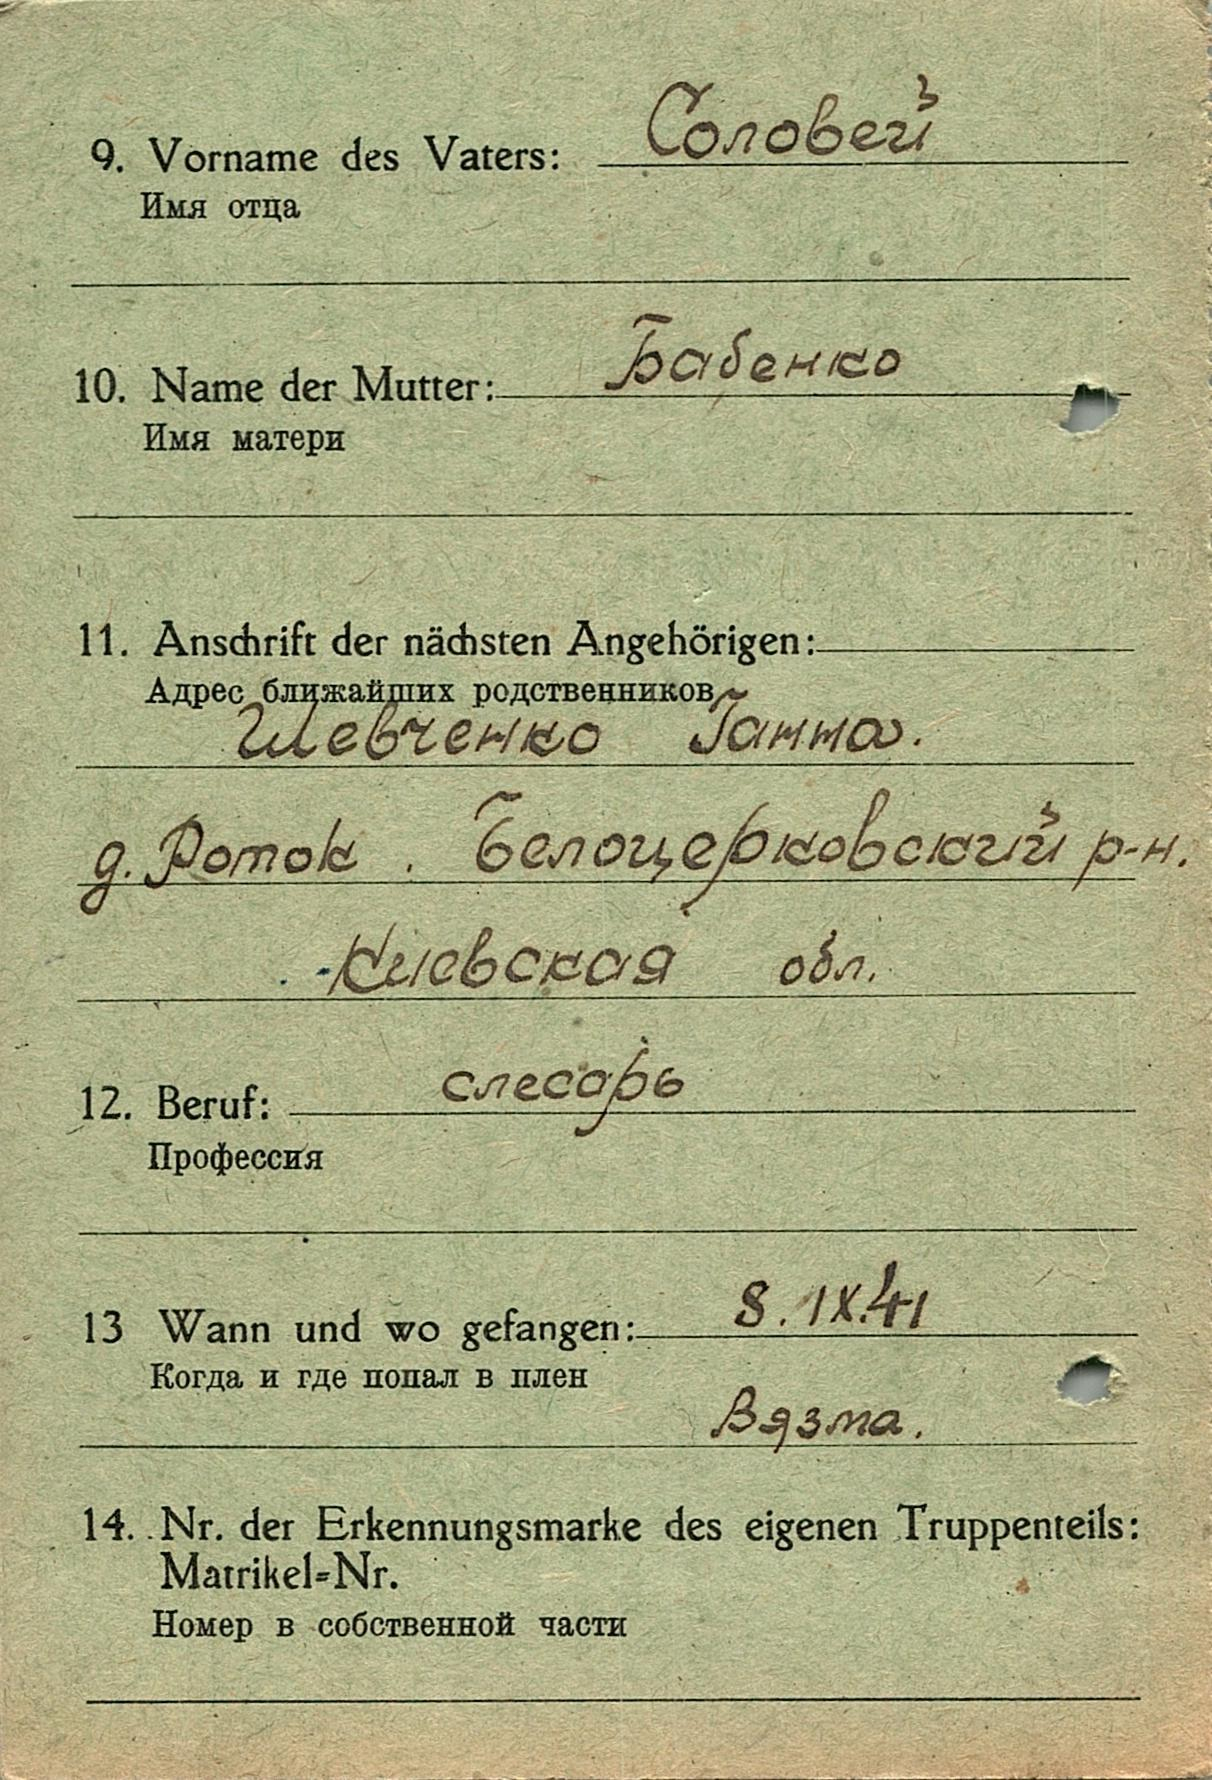 9. Vorname des Vaters: Соловей
Имя отца
10. Name der Mutter: Бабенко
Имя матери
11. Anschrift der nächsten Angehörigen:
Адрес ближайших родственников
Шевченко Ганна.
д. Роток. Белоцерковский р-н.
Киевская обл.
12. Beruf: слесарь
Профессия
13 Wann und wo gefangen: 8. IX. 41
Когда и где попал в плен
Вязма.
14. Nr. der Erkennungsmarke des eigenen Truppenteils:
Matrikel=Nr.
Номер в собственной части